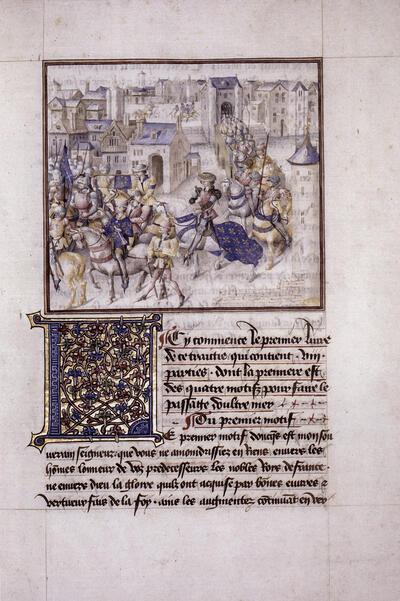 Cy commence le premier liure
de ce traittie qui contient . viij .
parties . dont la premiere est
des quatre motifz pour faire le
passaige doultre mer
Du premier motif
E premier motif doncques est mon sou
uerain seigneur que vous ne amondrissiez en riens enuers les
hommes lonneur de voz predecesseurs les nobles Rois de france .
ne enuers dieu la gloire quilz ont acquise par bonnes euures et
vertueux fais de la foy . ains les augmentez